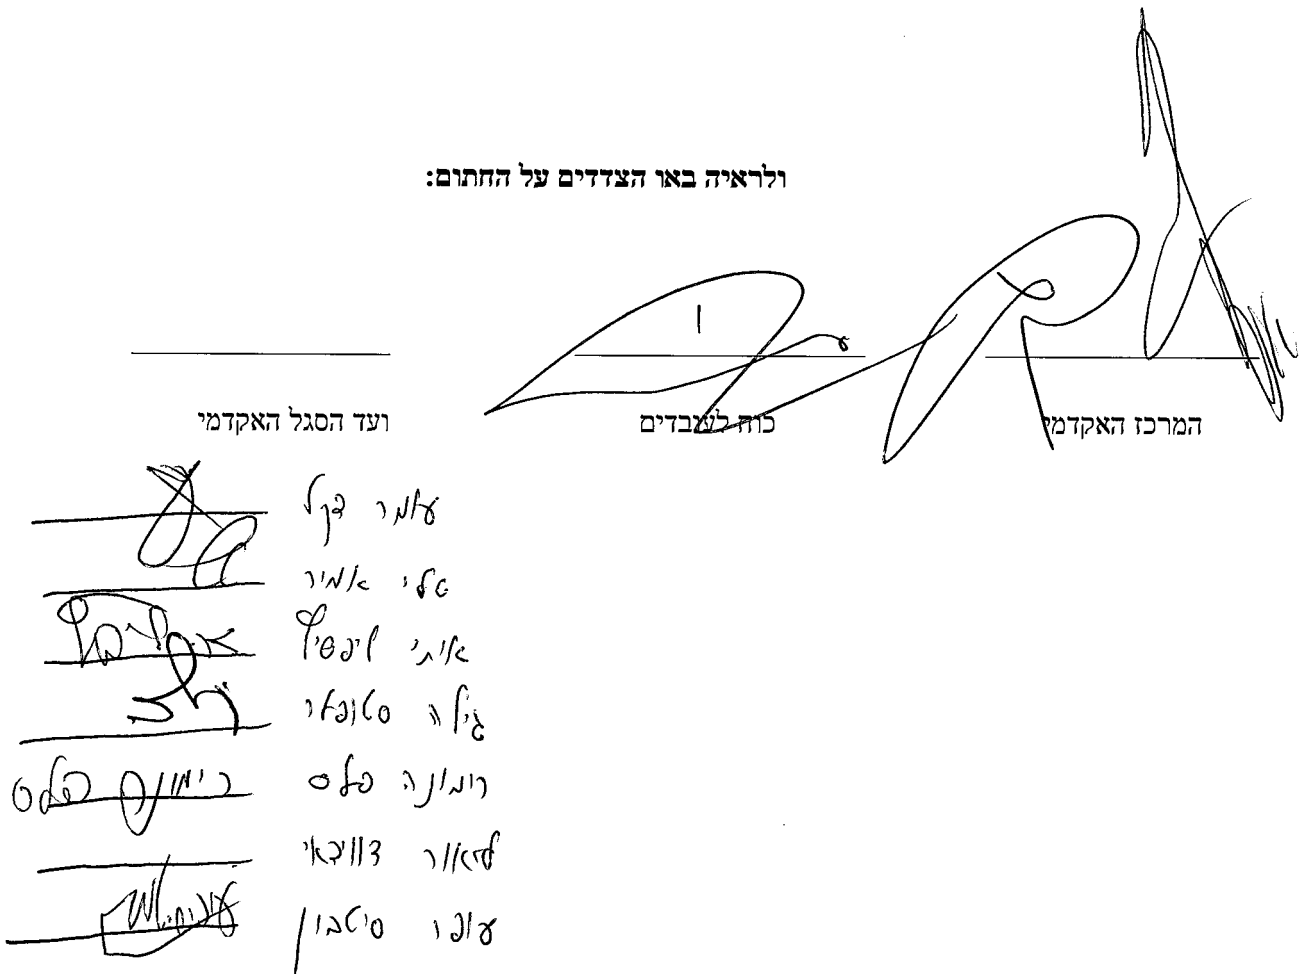 ולראיה באו הצדדים על החתום:
המרכז האקדמי כוח לעובדים ועד הסגל האקדמי
עומר דקל
טלי אמיר
איתי ליפשיץ
גילה סטופלר
רימונה פלס
ליאור דוידאי
עופר סיטבון
רימונה פלס